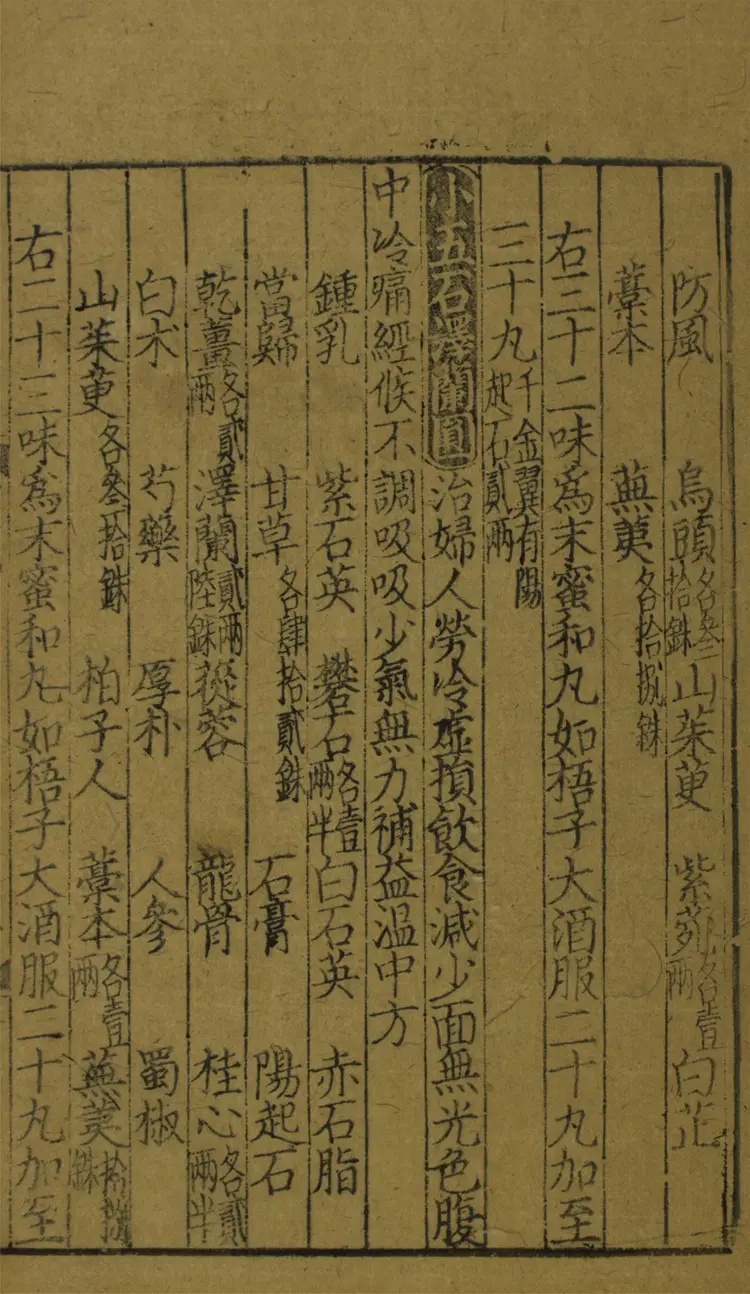 防風 烏頭各叁拾銖 山茱萸 紫菀各壹兩 白芷
藁本 蕪荑各拾捌銖
右三十二味爲末蜜和丸如梧子大酒服二十丸加至
三十丸千金翼有陽起石貳兩
小五石澤蘭圓治婦人勞冷虛損飲食減少面無光色腹
中冷痛經候不調吸吸少氣無力補益溫中方
鍾乳 紫石英 礬石各壹兩半 白石英 赤石脂
當歸 甘草各肆拾貳銖 石膏 陽起石
乾薑各貳兩 澤蘭貳兩陸銖 蓯蓉 龍骨 桂心各貳兩半
白朮 芍藥 厚朴 人參 蜀椒
山茱萸各叁拾銖 柏子人 藁本各壹兩 蕪荑拾捌銖
右二十三味爲末蜜和丸如梧子大酒服二十丸加至